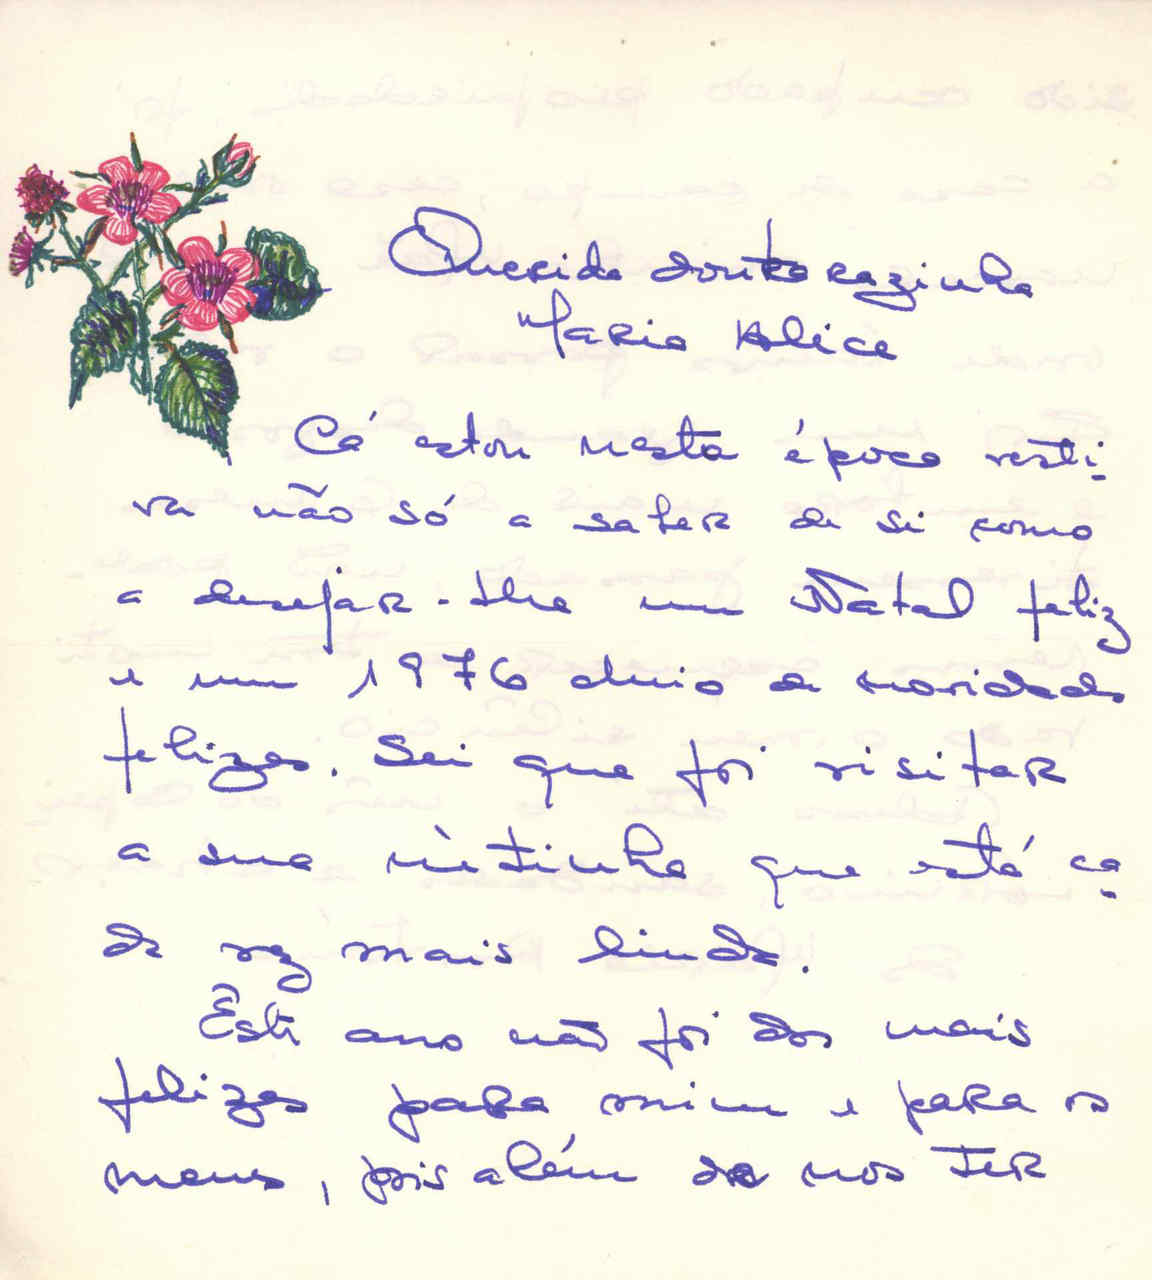 Querida doutorazinha
Maria Alice
Cá estou nesta época festi-
va não só a saber de si como
a desejar-lhe um Natal feliz
e um 1976 cheio de novidades
felizes. Sei que foi visitar
a sua netinha que está ca-
da vez mais linda.
Este ano não foi dos mais
felizes para mim e para os
meus, pois além de nos ter